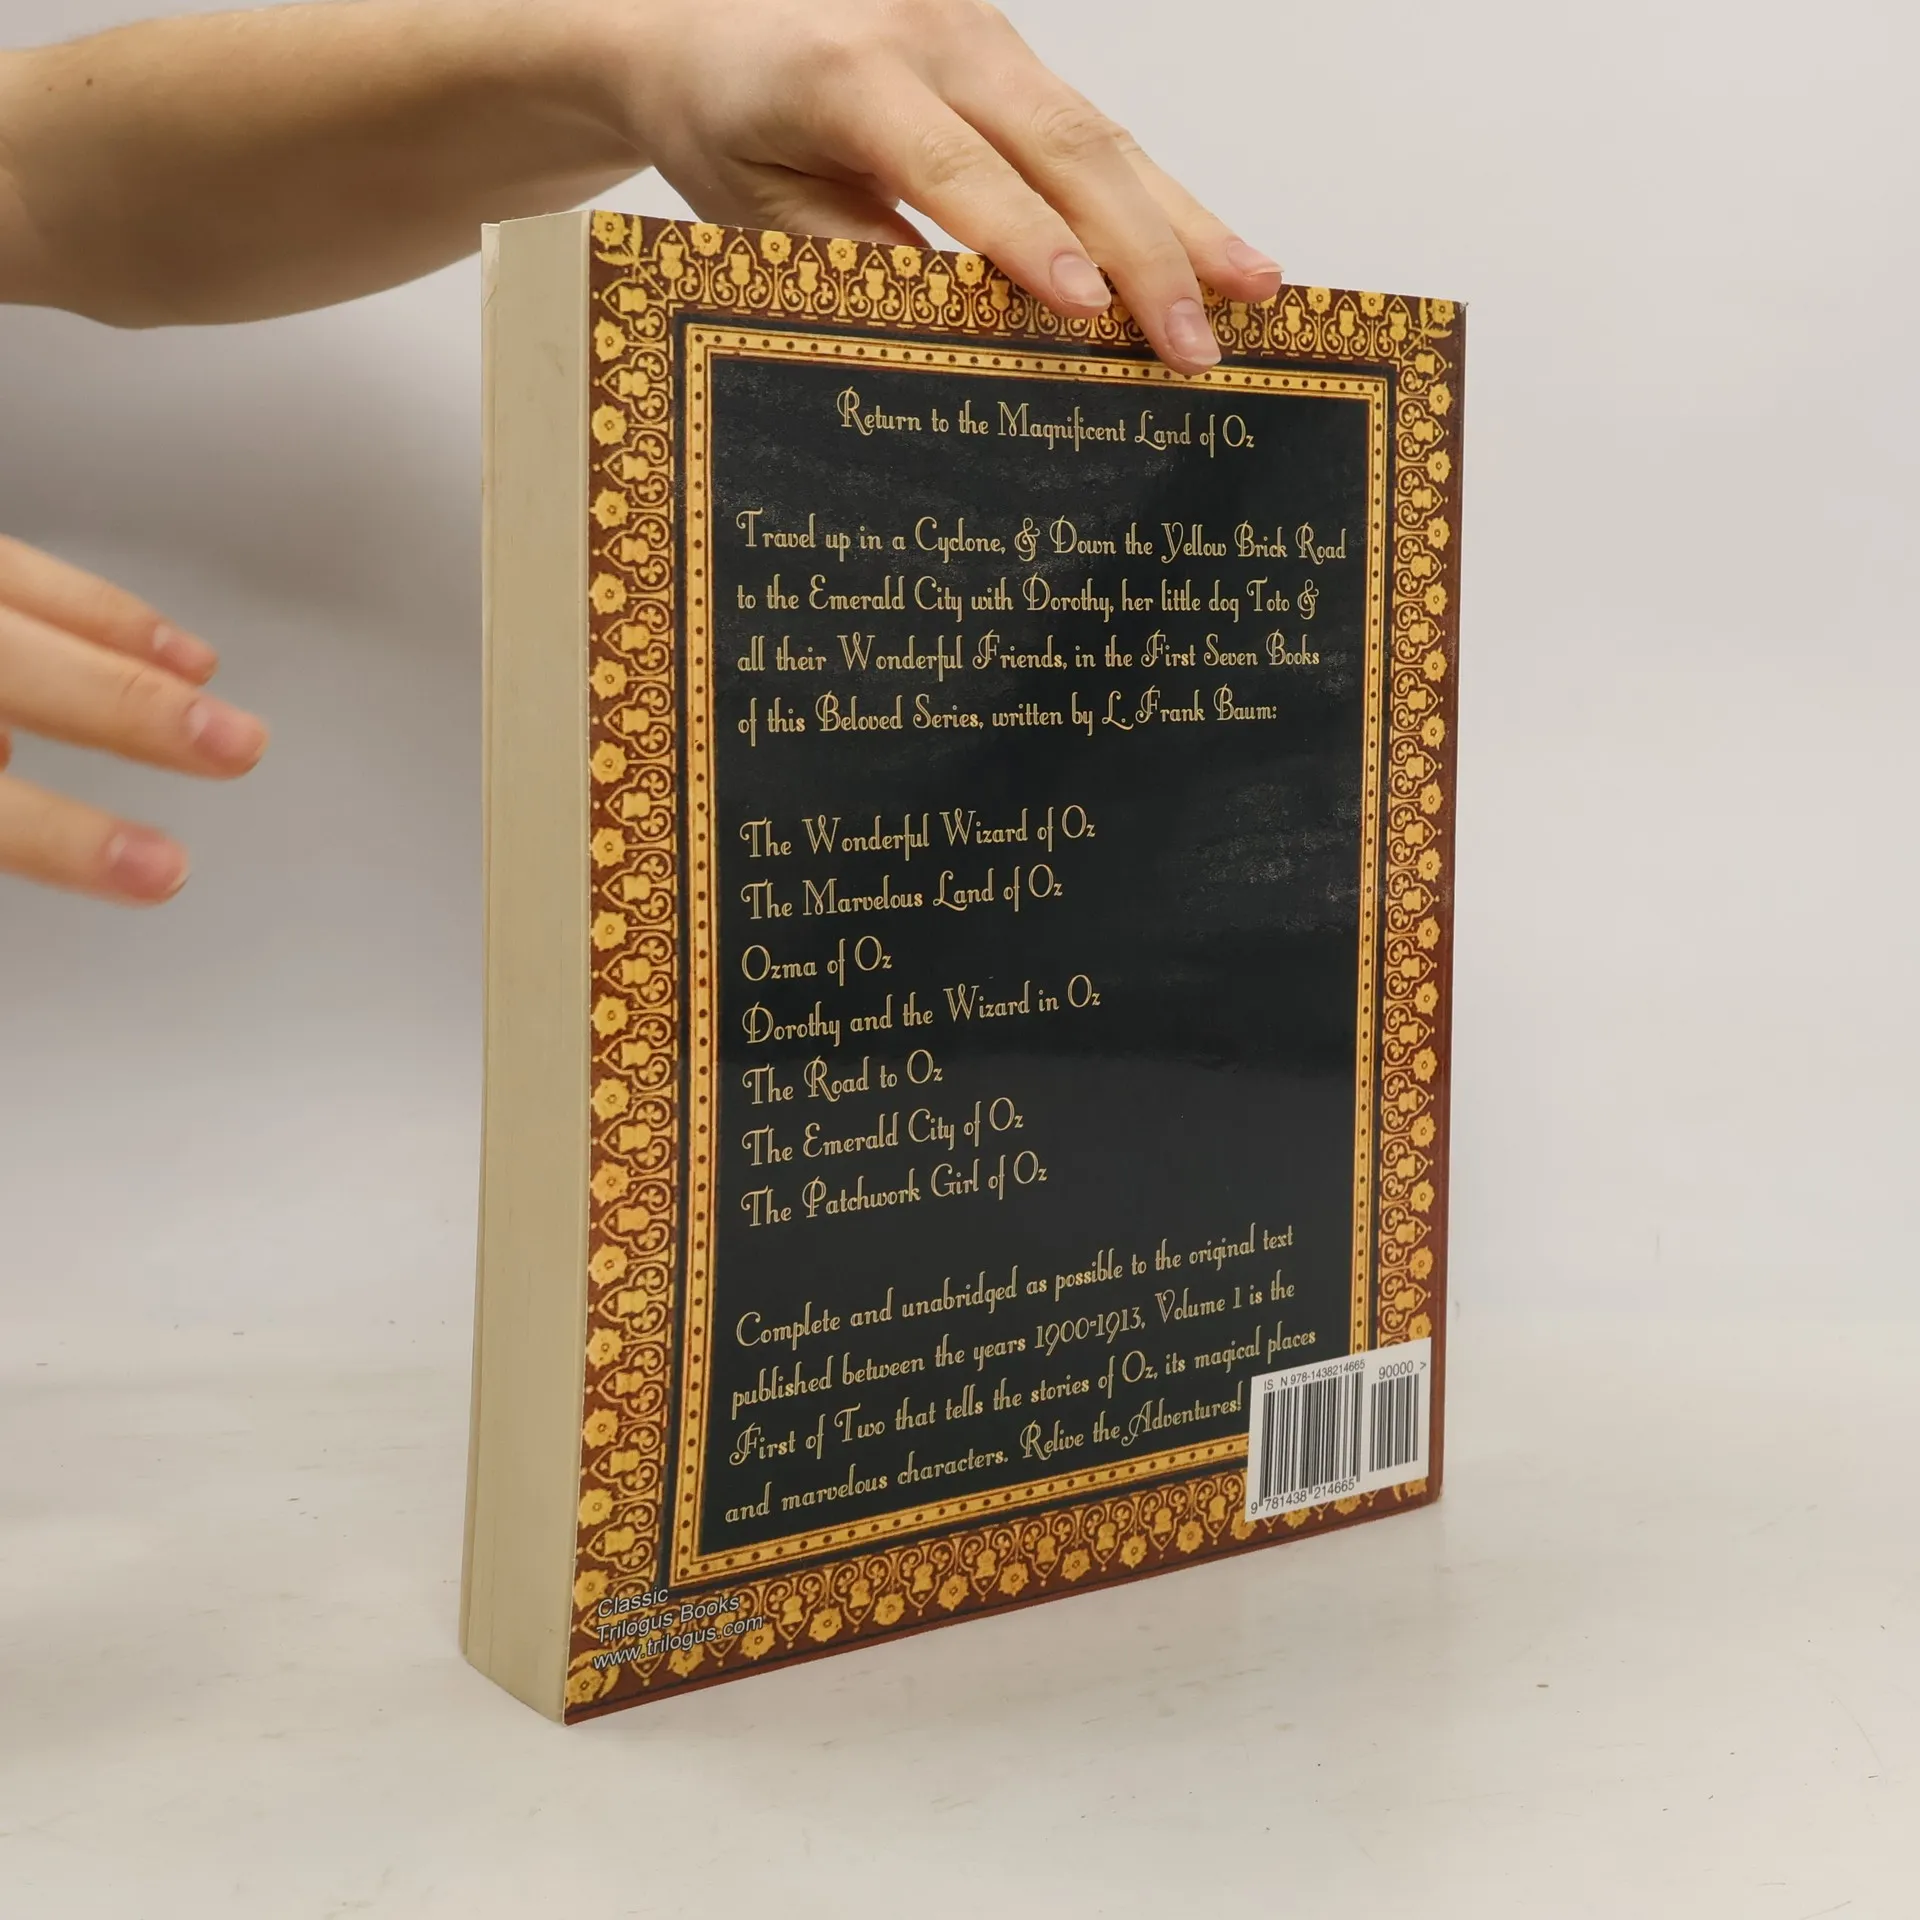 Return to the Magnificent Land of Oz
Travel up in a Cyclone, & Down the Yellow Brick Road
to the Emerald City with Dorothy, her little dog Toto &
all their Wonderful Friends, in the First Seven Books
of this Beloved Series, written by L. Frank Baum:
The Wonderful Wizard of Oz
The Marvelous Land of Oz
Ozma of Oz
Dorothy and the Wizard in Oz
The Road to Oz
The Emerald City of Oz
The Patchwork Girl of Oz
Complete and unabridged as possible to the original text
published between the years 1900-1913, Volume 1 is the
First of Two that tells the stories of Oz, its magical places
and marvelous characters. Relive the Adventures!
IS N 978-1438214665
90000 >
9 781438 214665
Classic
Trilogus Books
www.trilogus.com